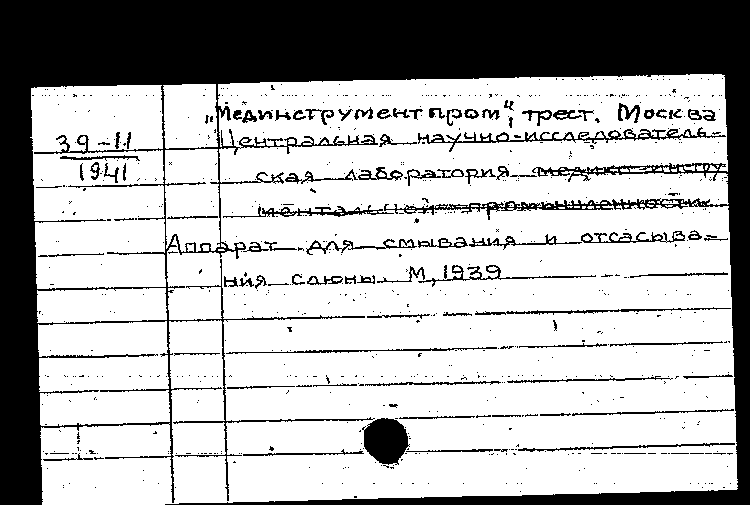 „Мединструментпром“, трест. Москва
39-11
1941
Центральная научно-исследователь-
ская лаборатория медико-инстру
ментальной промышленности
Аппарат для смывания и отсасыва-
ния слюны. М, 1939